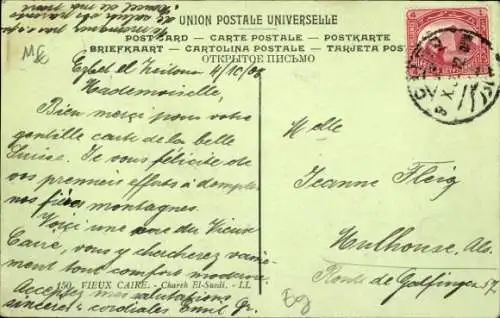 UNION POSTALE UNIVERSELLE
POSTCARD — CARTE POSTALE — POSTKARTE
BRIEFKAART — CARTOLINA POSTALE — TARJETA POS
ОТКРЫТОЕ ПИСЬМО
Ezbet el Zeitoun 4/10/06
Mademoiselle,
Bien merçi pour votre
gentille carte de la belle
Suisse. Je vous félicite de
vos premiers efforts à dompter
nos fières montagnes.
Voiçi une rue du Vieux
Caire, vous y chercherez vaine-
ment tout comfort moderne.
150. VIEUX CAIRE. - Chareh El-Sandi. - LL
Acceptez mes salutations
sincères & cordiales Emil Gr.
Mlle
Jeanne Fleig
Mulhouse. Als.
Route de 57